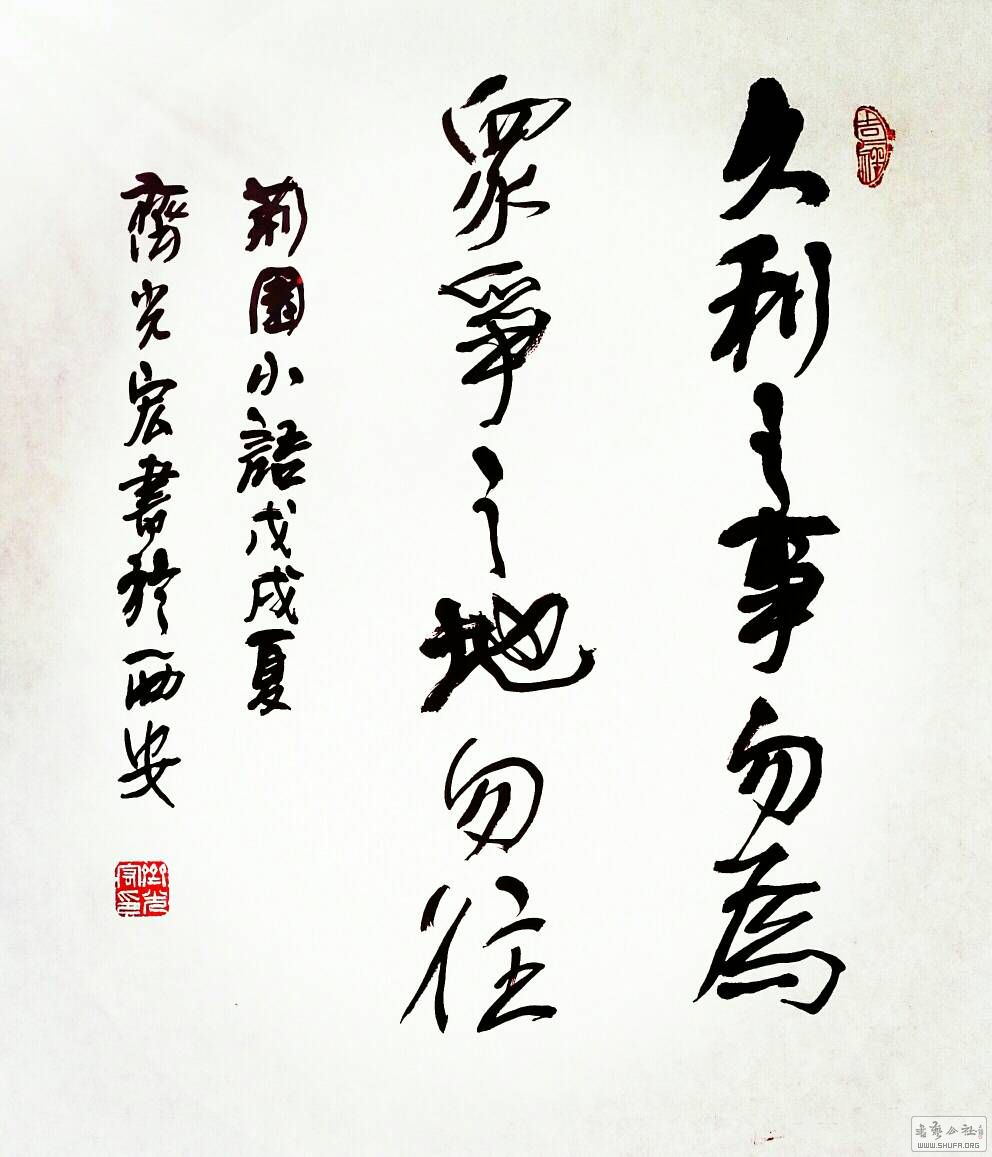 久利之事勿為
眾爭之地勿往
荊園小語戊戌夏
齊光宏書於西安
吉祥
WWW.SHUFA.ORG